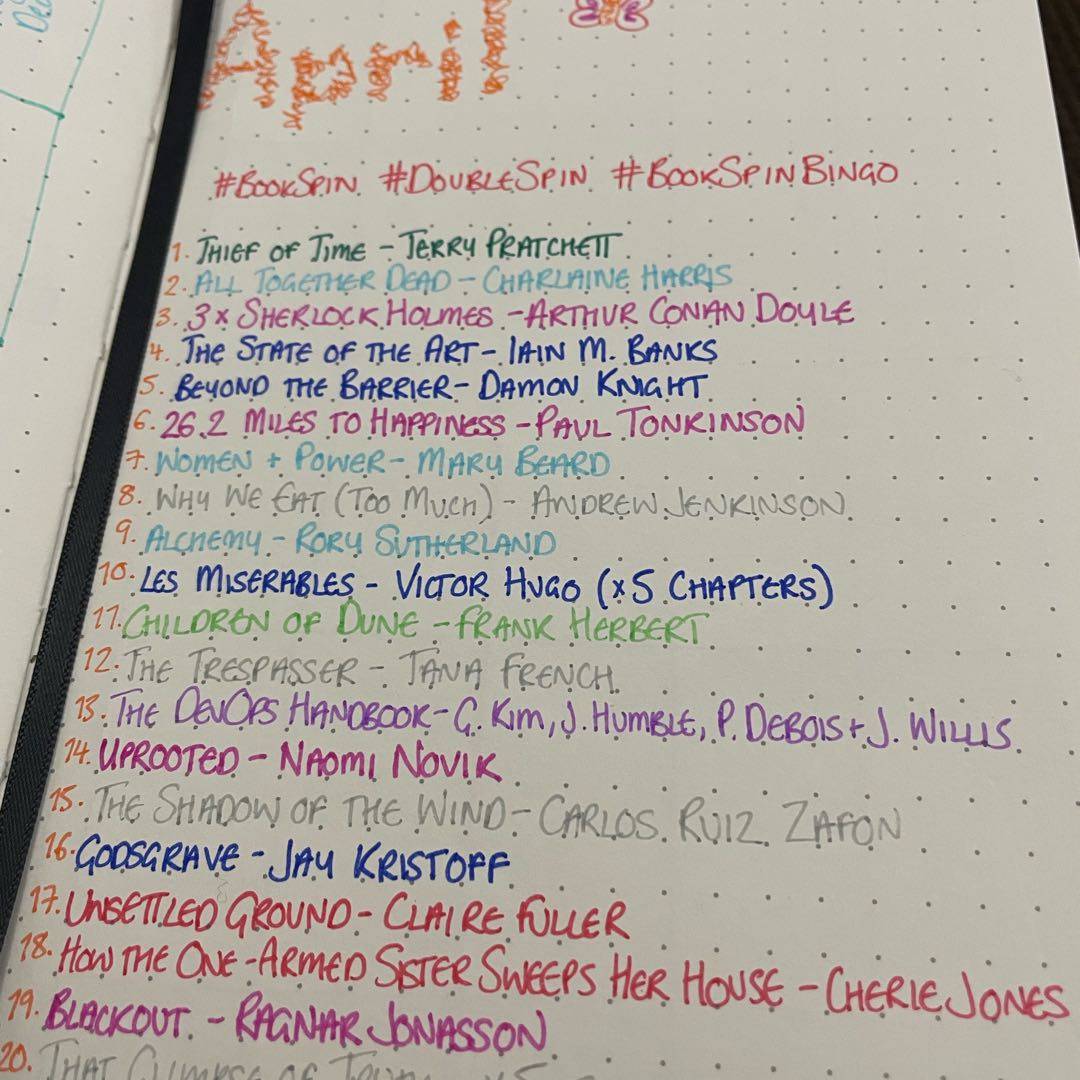 April
#BookSpin #DoubleSpin #BookSpinBingo
1. Thief of Time - Terry Pratchett
2. All Together Dead - Charlaine Harris
3. 3x Sherlock Holmes - Arthur Conan Doyle
4. The State of the Art - Iain M. Banks
5. Beyond the Barrier - Damon Knight
6. 26.2 Miles to Happiness - Paul Tonkinson
7. Women + Power - Mary Beard
8. Why We Eat (Too Much) - Andrew Jenkinson
9. Alchemy - Rory Sutherland
10. Les Miserables - Victor Hugo (x5 Chapters)
11. Children of Dune - Frank Herbert
12. The Trespasser - Tana French
13. The DevOps Handbook - G. Kim, J. Humble, P. Debois + J. Willis
14. Uprooted - Naomi Novik
15. The Shadow of the Wind - Carlos Ruiz Zafon
16. Godsgrave - Jay Kristoff
17. Unsettled Ground - Claire Fuller
18. How the One-Armed Sister Sweeps Her House - Cherie Jones
19. Blackout - Ragnar Jonasson
20. That Glimpse of Truth